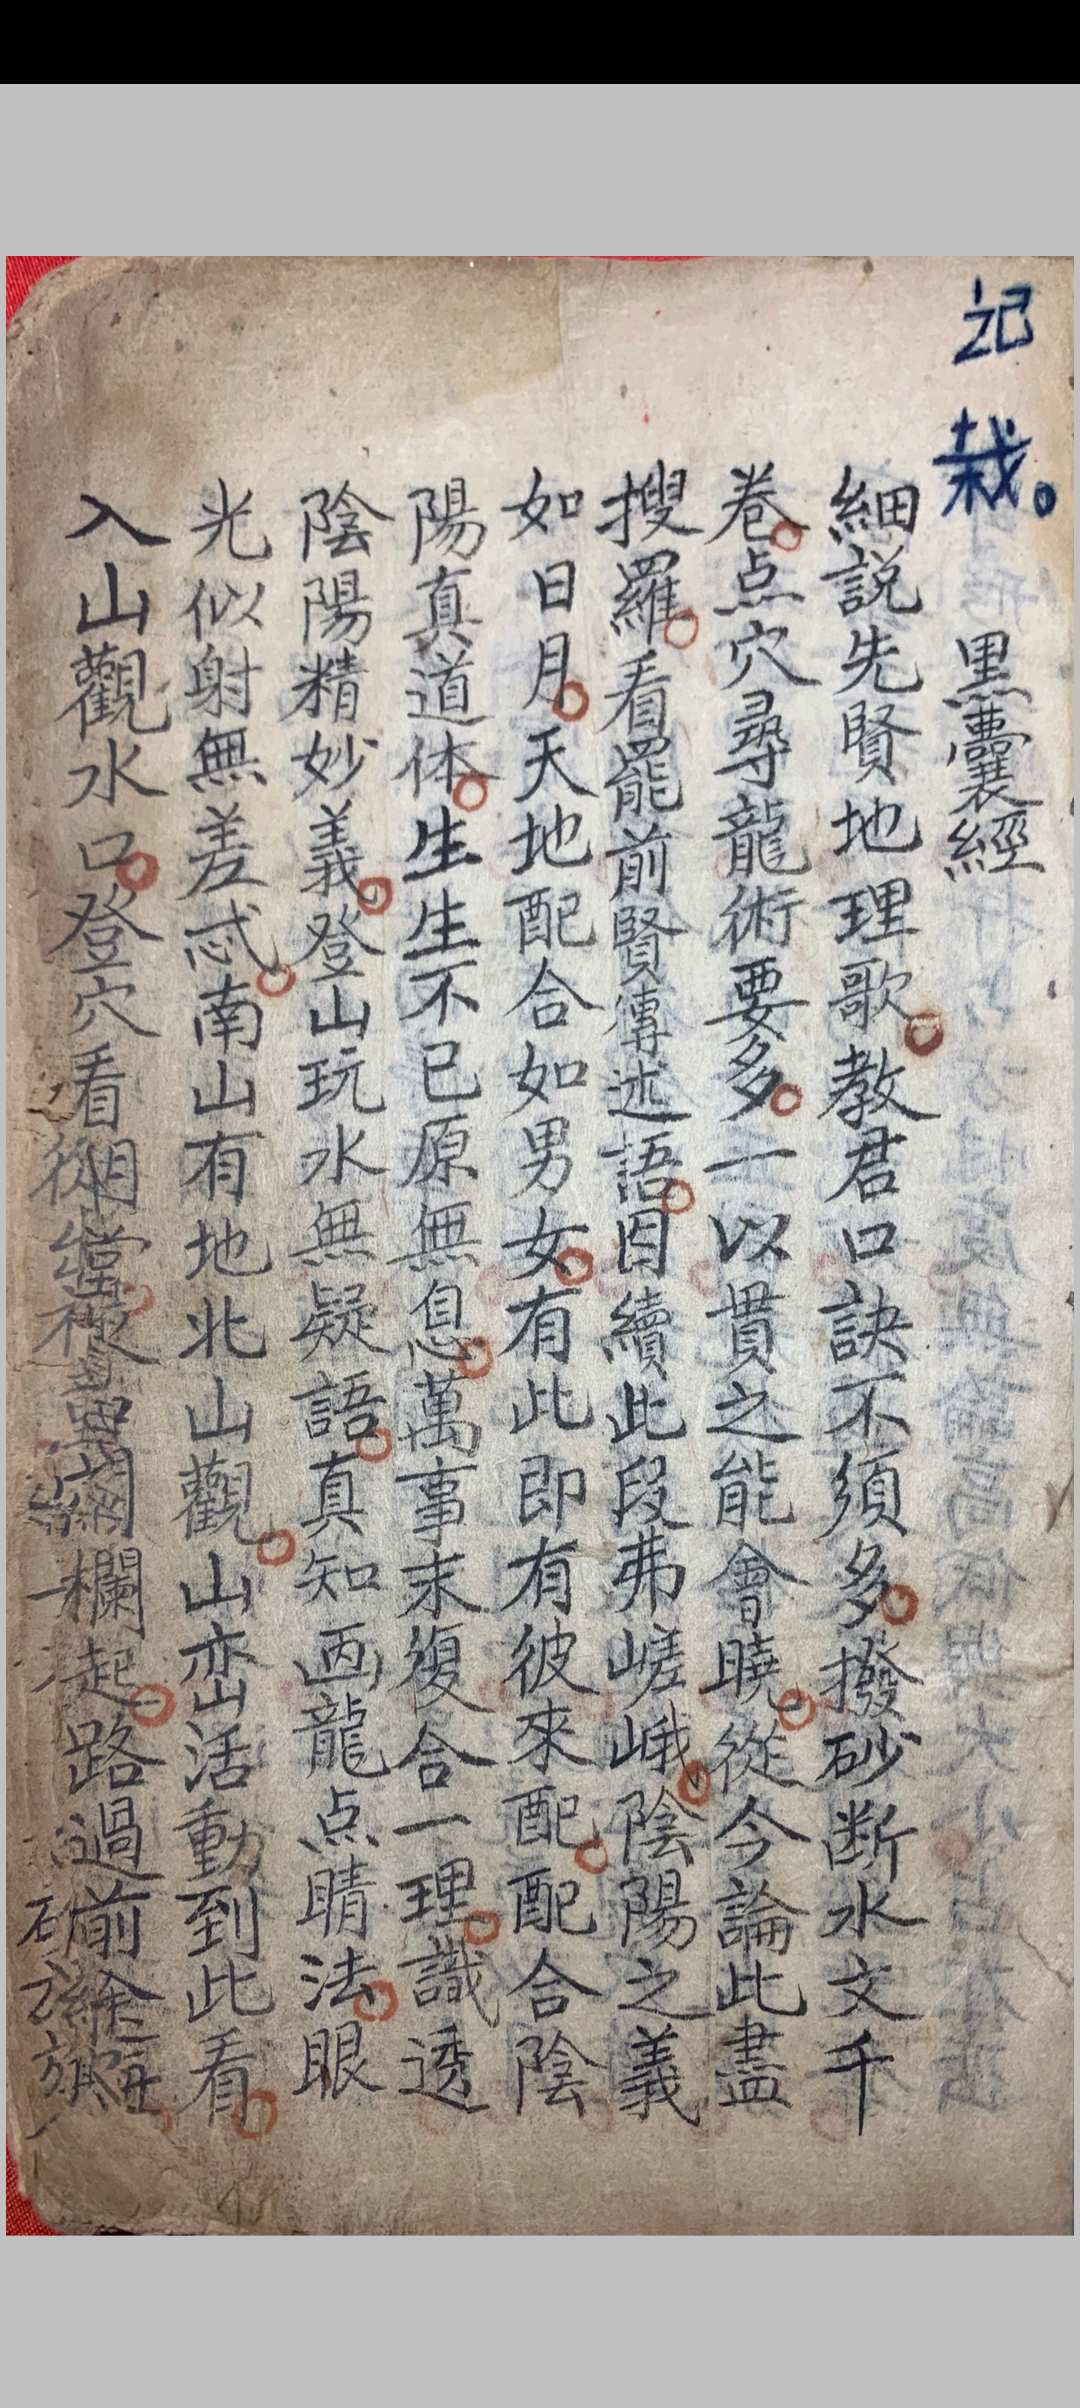 記
栽。
黑囊經
細説先賢地理歌。教君口訣不須多。撥砂断水文千
卷。点穴尋龍術要多。一以貫之能會曉。從今論此盡
搜羅。看罷前賢傳述語。因續此段弗嵯峨。陰陽之義
如日月。天地配合如男女。有此即有彼來配。配合陰
陽真道体。生生不已原無息。萬事末復合一理。識透
陰陽精妙義。登山玩水無疑語。真知画龍点睛法。眼
光似射無差忒。南山有地北山觀。山峦活動到此看。
入山觀水口。登穴看明堂。欄起。路過前